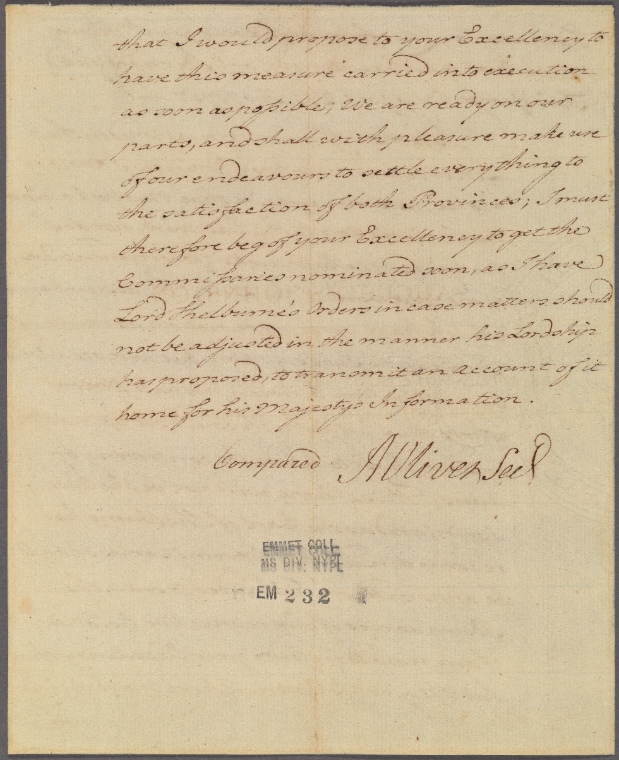 that I would propose to your Excellency to
have this measure carried into execution
as soon as possible; We are ready on our
parts, and shall with pleasure make use
of our endeavours to settle every thing to
the satisfaction of both Provinces; I must
therefore beg of your Excellency to get the
Commissaries nominated soon, as I have
Lord Shelburne's Orders in case matters should
not be adjusted in the manner his Lordship
has proposed, to transmit an Account of it
home for his Majesty's Information.
Compared A Oliver Secy
EMMET COLL
MS DIV. NYPL
EM 232